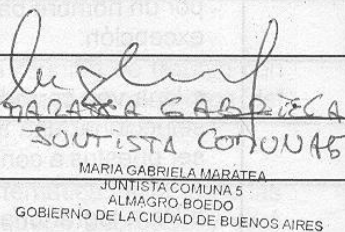 MARATEA GABRIELA
JUNTISTA COMUNA5
MARIA GABRIELA MARATEA
JUNTISTA COMUNA 5
ALMAGRO-BOEDO
GOBIERNO DE LA CIUDAD DE BUENOS AIRES